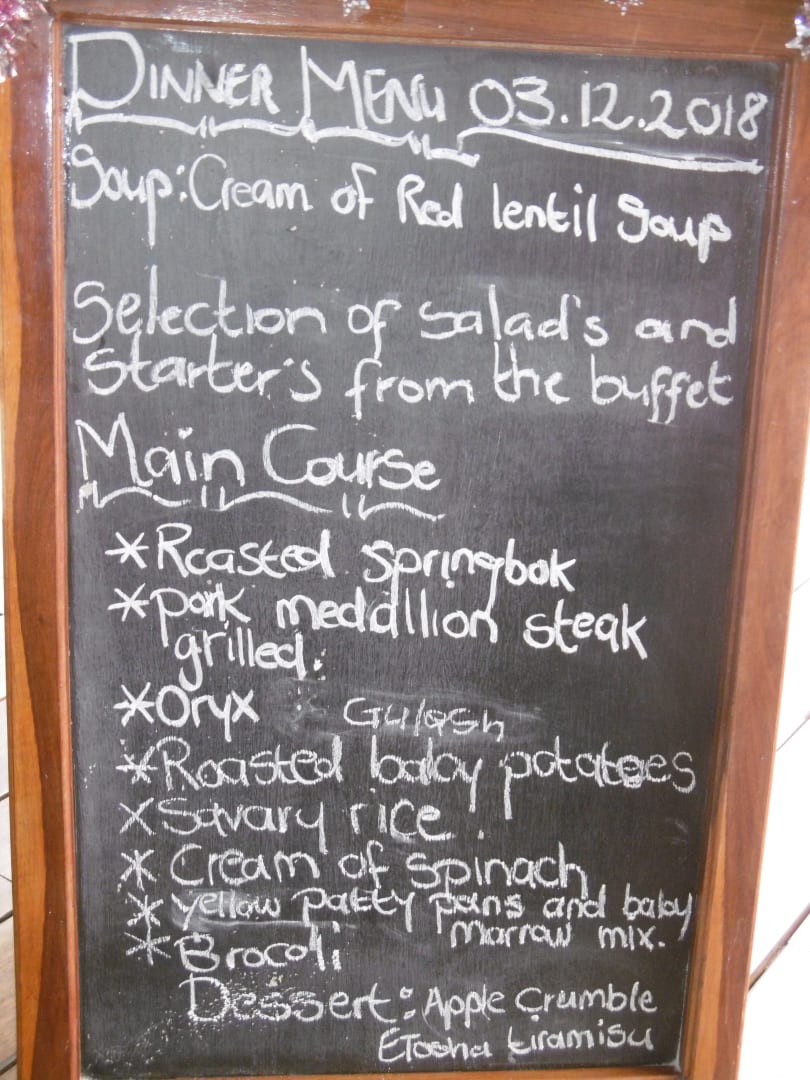 DINNER MENU 03.12.2018
Soup: Cream of Red lentil Soup
Selection of Salad's and
Starter's from the buffet
Main Course
* Roasted springbok
* pork medallion steak
grilled.
* Oryx Gulash
* Roasted baby potatoes
* Savary rice.
* Cream of spinach
* yellow patty pans and baby
marrow mix.
* Brocoli
Dessert: Apple Crumble
Etosha tiramisu